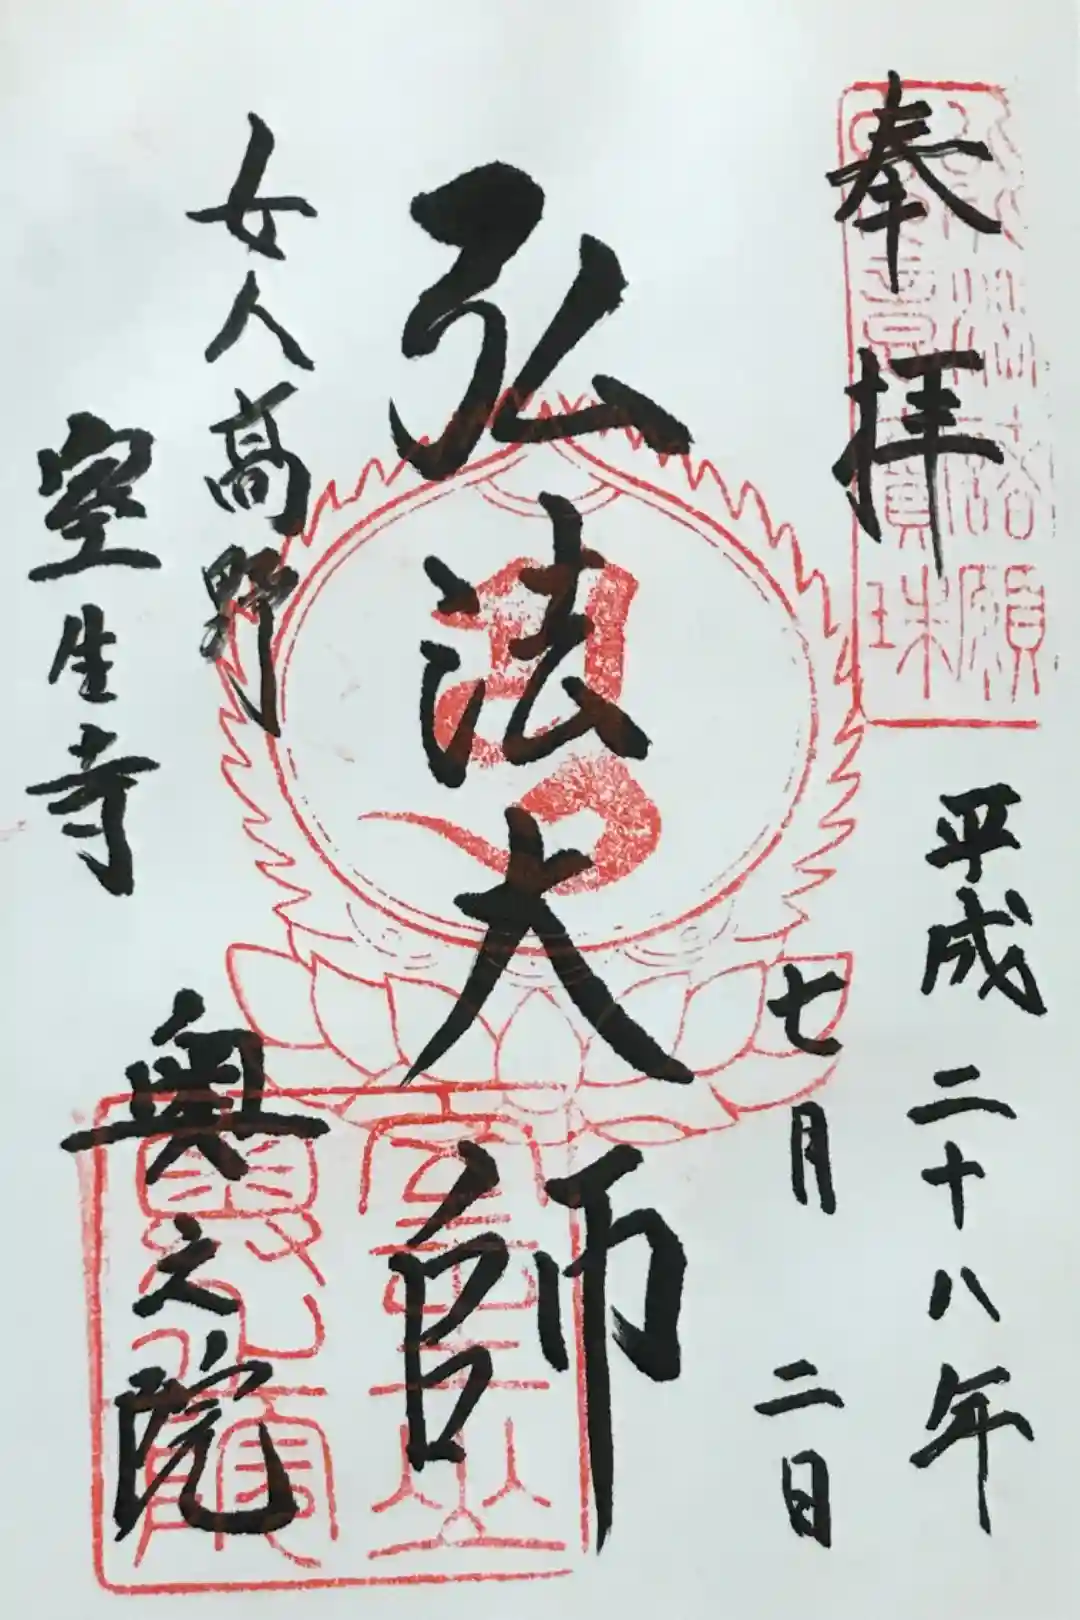 奉拝
平成二十八年
七月二日
弘法大師
女人高野
室生寺
奥之院